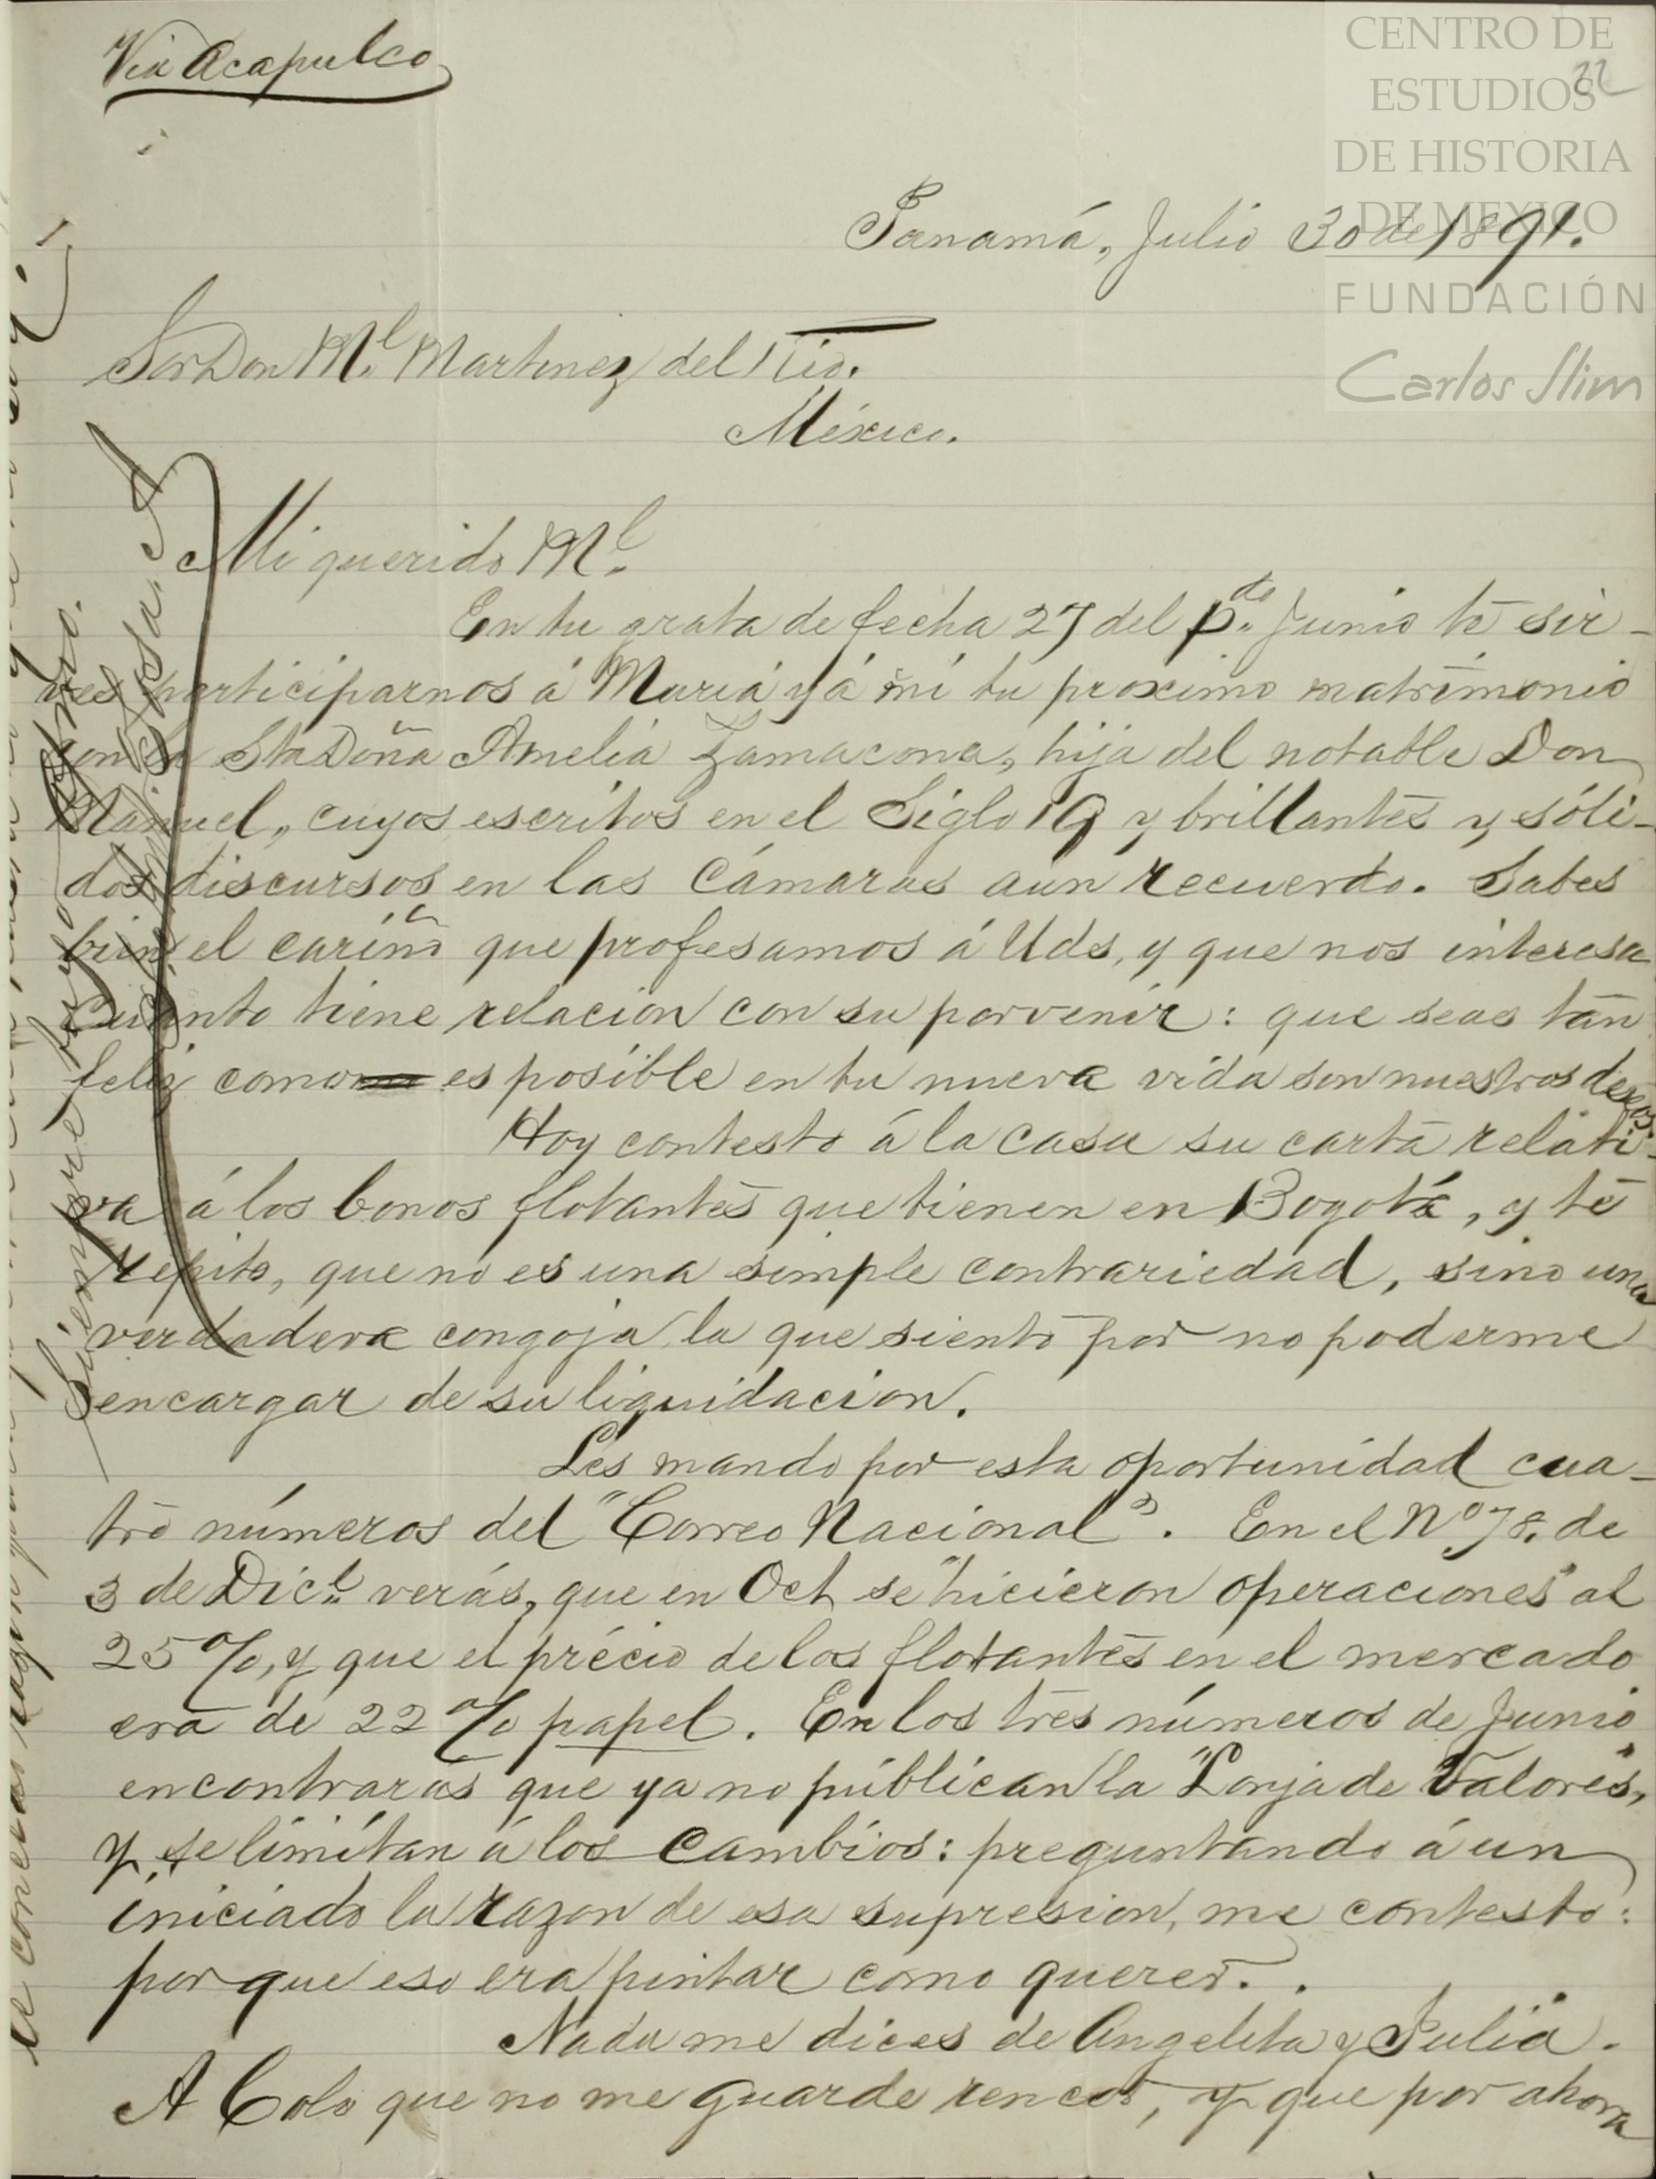 Via Acapulco
22
CENTRO DE
ESTUDIOS
DE HISTORIA
DE MEXICO
FUNDACIÓN
Carlos Slim
Panamá, Julio 30 de 1891.
Sor Don Ml. Martinez del Rio.
México.
Mi querido Ml.
En tu grata de fecha 27 del pdo. Junio te sir-
ves participarnos á Maria y á mi tu proximo matrimonio
con la Sta Doña Amelia Zamacona, hija del notable Don
Manuel, cuyos escritos en el Siglo 19 y brillantes y sóli-
dos discursos en las Cámaras aun recuerdo. Sabes
bien el cariño que profesamos á Uds, y que nos interesa
cuanto tiene relacion con su porvenir: que seas tan
feliz como es posible en tu nueva vida son nuestros deseos.
Hoy contesto á la casa su carta relati-
va á los bonos flotantes que tienen en Bogotá, y te
repito, que no es una simple contrariedad, sino una
verdadera congoja la que siento por no poderme
encargar de su liquidacion.
Les mando por esta oportunidad cua-
tro números del "Correo Nacional". En el No 78. de
3 de Dice. verás, que en Oct. se "hicieron operaciones" al
25 %, y que el précio de los flotantes en el mercado
era de 22 % papel. En los tres números de Junio
encontrarás que ya no publican la "Lonja de Valores",
y se limitan á los Cambios: preguntando á un
iniciado la razon de esa supresion, me contestó:
por que eso era pintar como querer..
Nada me dices de Angelita y Julia.
A Colo que no me guarde rencor, y que por ahora
le concedas razon
Siempre tuyo